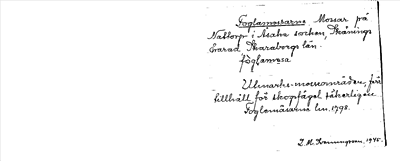 Foglamossarna Mossar på
Nattorp i Asaka socken, Kåkinds
härad Skaraborgs län.
foglamosa
Utmarks-mossområden, förr
tillhåll för skogsfågel säkerligen.
Foglemåsarna lm. 1798.
1945.